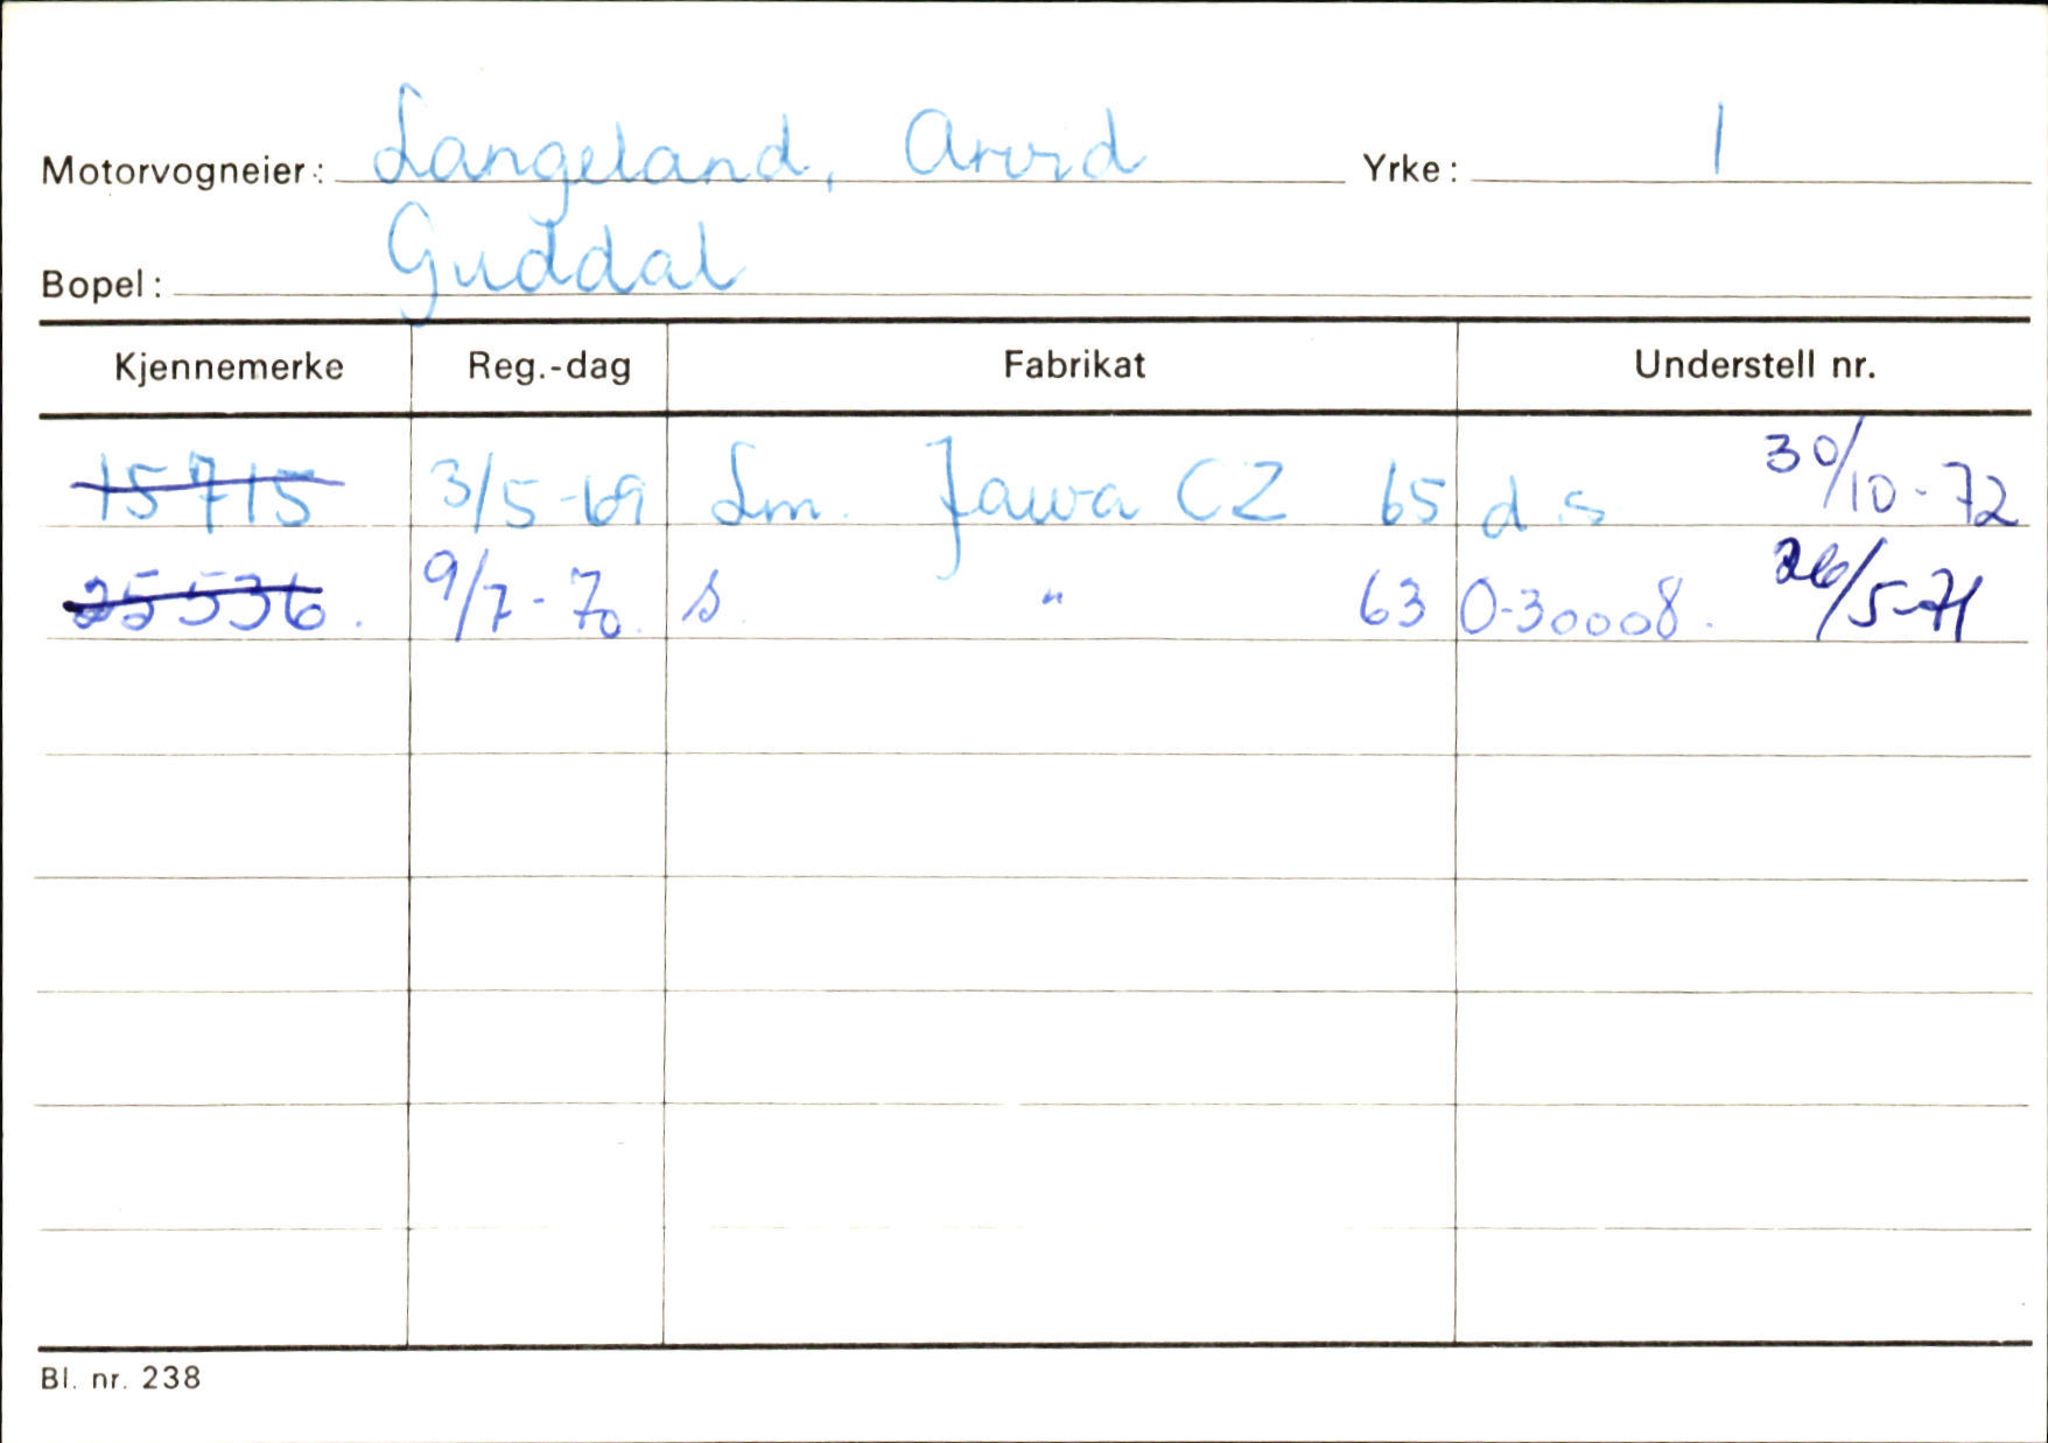 Motorvogneier: Langeland, Arvid Yrke: 1
Bopel: Guddal
Kjennemerke Reg.-dag Fabrikat Understell nr.
15715 3/5-69 Lm. Jawa CZ 65 d.s 30/10-72
25536. 9/7-70. s " 63 0-30008. 26/5-71
Bl. nr. 238